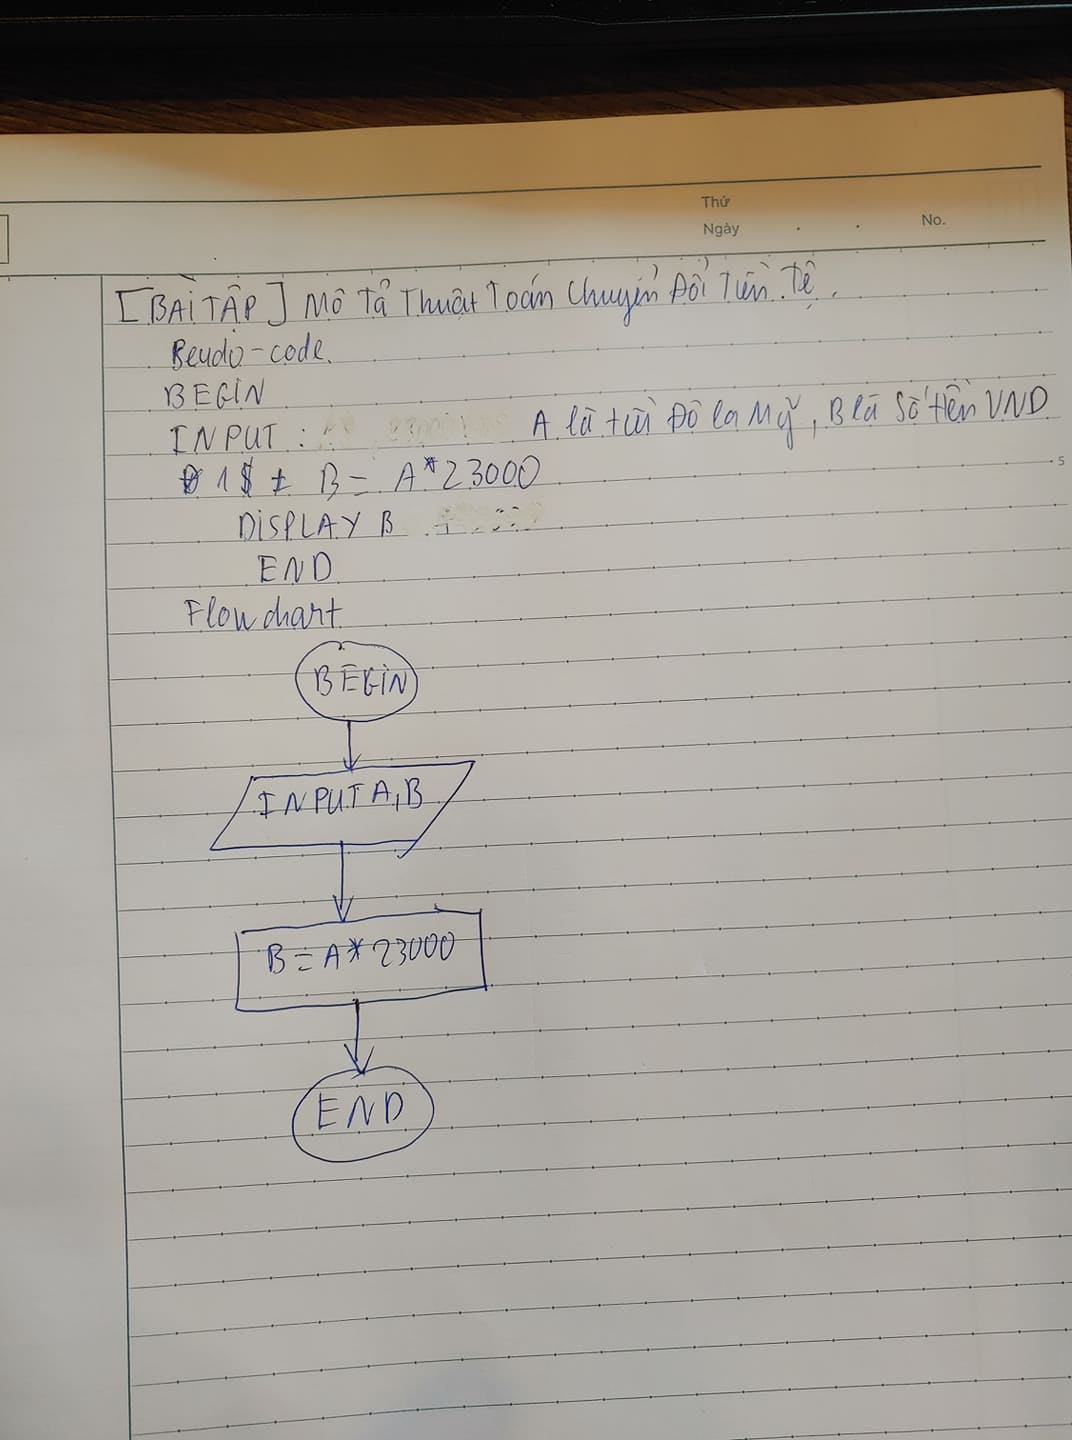 Thứ
Ngày
No.
[BÀI TẬP] Mô Tả Thuật Toán Chuyển Đổi Tiền Tệ.
Beudo-code.
BEGIN
INPUT : A là tiền Đô la Mỹ, B là Số tiền VND
1$ B = A*23000
5
DISPLAY B
END
Flow chart
BEGIN
INPUT A, B
B = A * 23000
END